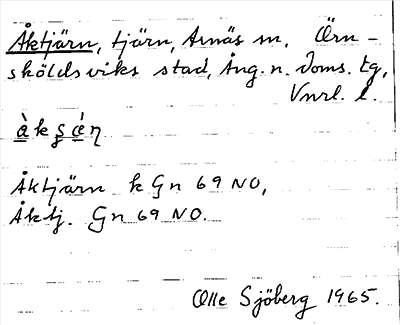 Åktjärn, tjärn, Arnäs sn. Örn-
sköldsviks stad, Ång. n. doms. tg,
Vnrl. l.
Åktjärn k Gn 69 NO,
Åktj. Gn 69 NO.
Olle Sjöberg 1965.